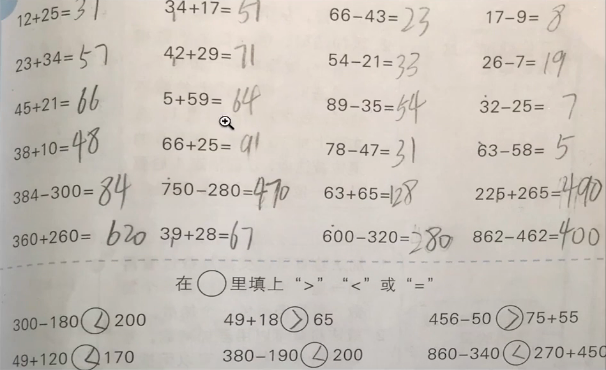 12+25=37 34+17=51 66-43=23 17-9=8
23+34=57 42+29=71 54-21=33 26-7=19
45+21=66 5+59=64 89-35=54 32-25=7
38+10=48 66+25=91 78-47=31 63-58=5
384-300=84 750-280=470 63+65=128 225+265=490
360+260=620 39+28=67 600-320=280 862-462=400
在○里填上 “>” “<” 或 “=”
300-180<200 49+18>65 456-50>75+55
49+120<170 380-190<200 860-340<270+450